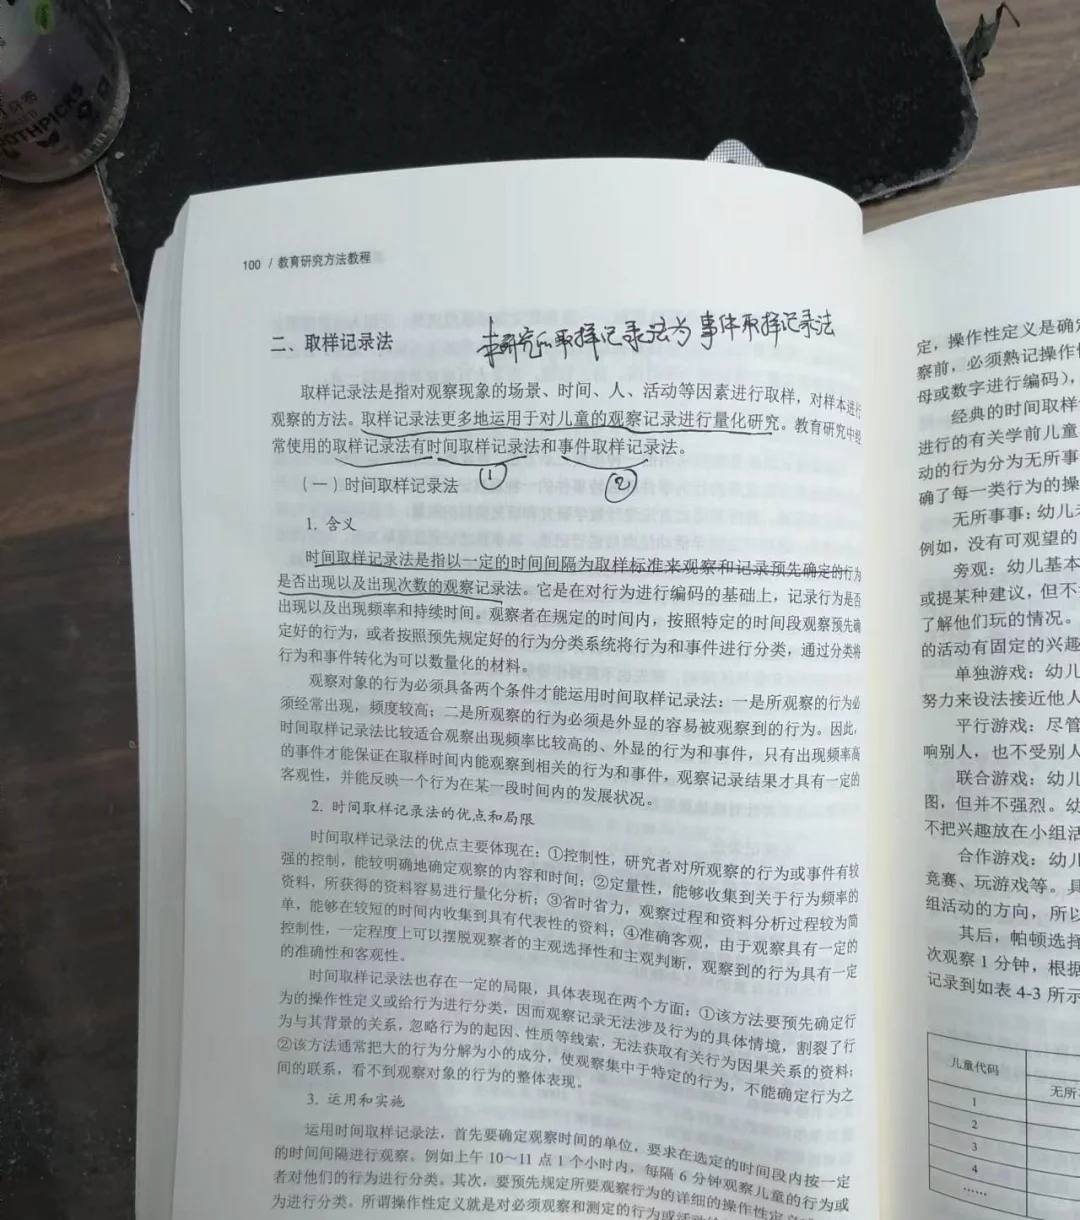 TOOTHPICKS
100 / 教育研究方法教程
二、取样记录法
本研究的取样记录法为事件取样记录法
取样记录法是指对观察现象的场景、时间、人、活动等因素进行取样，对样本进行
观察的方法。取样记录法更多地运用于对儿童的观察记录进行量化研究。教育研究中经
常使用的取样记录法有时间取样记录法和事件取样记录法。
① ②
（一）时间取样记录法
1. 含义
时间取样记录法是指以一定的时间间隔为取样标准来观察和记录预先确定的行为
是否出现以及出现次数的观察记录法。它是在对行为进行编码的基础上，记录行为是否
出现以及出现频率和持续时间。观察者在规定的时间内，按照特定的时间段观察预先确
定好的行为，或者按照预先规定好的行为分类系统将行为和事件进行分类，通过分类将
行为和事件转化为可以数量化的材料。
观察对象的行为必须具备两个条件才能运用时间取样记录法：一是所观察的行为必
须经常出现，频度较高；二是所观察的行为必须是外显的容易被观察到的行为。因此，
时间取样记录法比较适合观察出现频率比较高的、外显的行为和事件，只有出现频率高
的事件才能保证在取样时间内能观察到相关的行为和事件，观察记录结果才具有一定的
客观性，并能反映一个行为在某一段时间内的发展状况。
2. 时间取样记录法的优点和局限
时间取样记录法的优点主要体现在：①控制性，研究者对所观察的行为或事件有较
强的控制，能较明确地确定观察的内容和时间；②定量性，能够收集到关于行为频率的
资料，所获得的资料容易进行量化分析；③省时省力，观察过程和资料分析过程较为简
单，能够在较短的时间内收集到具有代表性的资料；④准确客观，由于观察具有一定的
控制性，一定程度上可以摆脱观察者的主观选择性和主观判断，观察到的行为具有一定
的准确性和客观性。
时间取样记录法也存在一定的局限，具体表现在两个方面：①该方法要预先确定行
为的操作性定义或给行为进行分类，因而观察记录无法涉及行为的具体情境，割裂了行
为与其背景的关系，忽略行为的起因、性质等线索，无法获取有关行为因果关系的资料；
②该方法通常把大的行为分解为小的成分，使观察集中于特定的行为，不能确定行为之
间的联系，看不到观察对象的行为的整体表现。
3. 运用和实施
运用时间取样记录法，首先要确定观察时间的单位，要求在选定的时间段内按一定
的时间间隔进行观察。例如上午 10～11 点 1 个小时内，每隔 6 分钟观察儿童的行为或
者对他们的行为进行分类。其次，要预先规定所要观察行为的详细的操作性定义
为进行分类。所谓操作性定义就是对必须观察和测定的行为或活动
定，操作性定义是确定
察前，必须熟记操作
母或数字进行编码），
经典的时间取样
进行的有关学前儿童
动的行为分为无所事
确了每一类行为的操
无所事事：幼儿
例如，没有可观望的
旁观：幼儿基本
或提某种建议，但不
了解他们玩的情况。
的活动有固定的兴趣
单独游戏：幼儿
努力来设法接近他人
平行游戏：尽管
响别人，也不受别人
联合游戏：幼儿
图，但并不强烈。幼
不把兴趣放在小组活
合作游戏：幼儿
竞赛、玩游戏等。具
组活动的方向，所以
其后，帕顿选择
次观察 1 分钟，根据
记录到如表 4-3 所示
儿童代码 无所
1
2
3
4
……